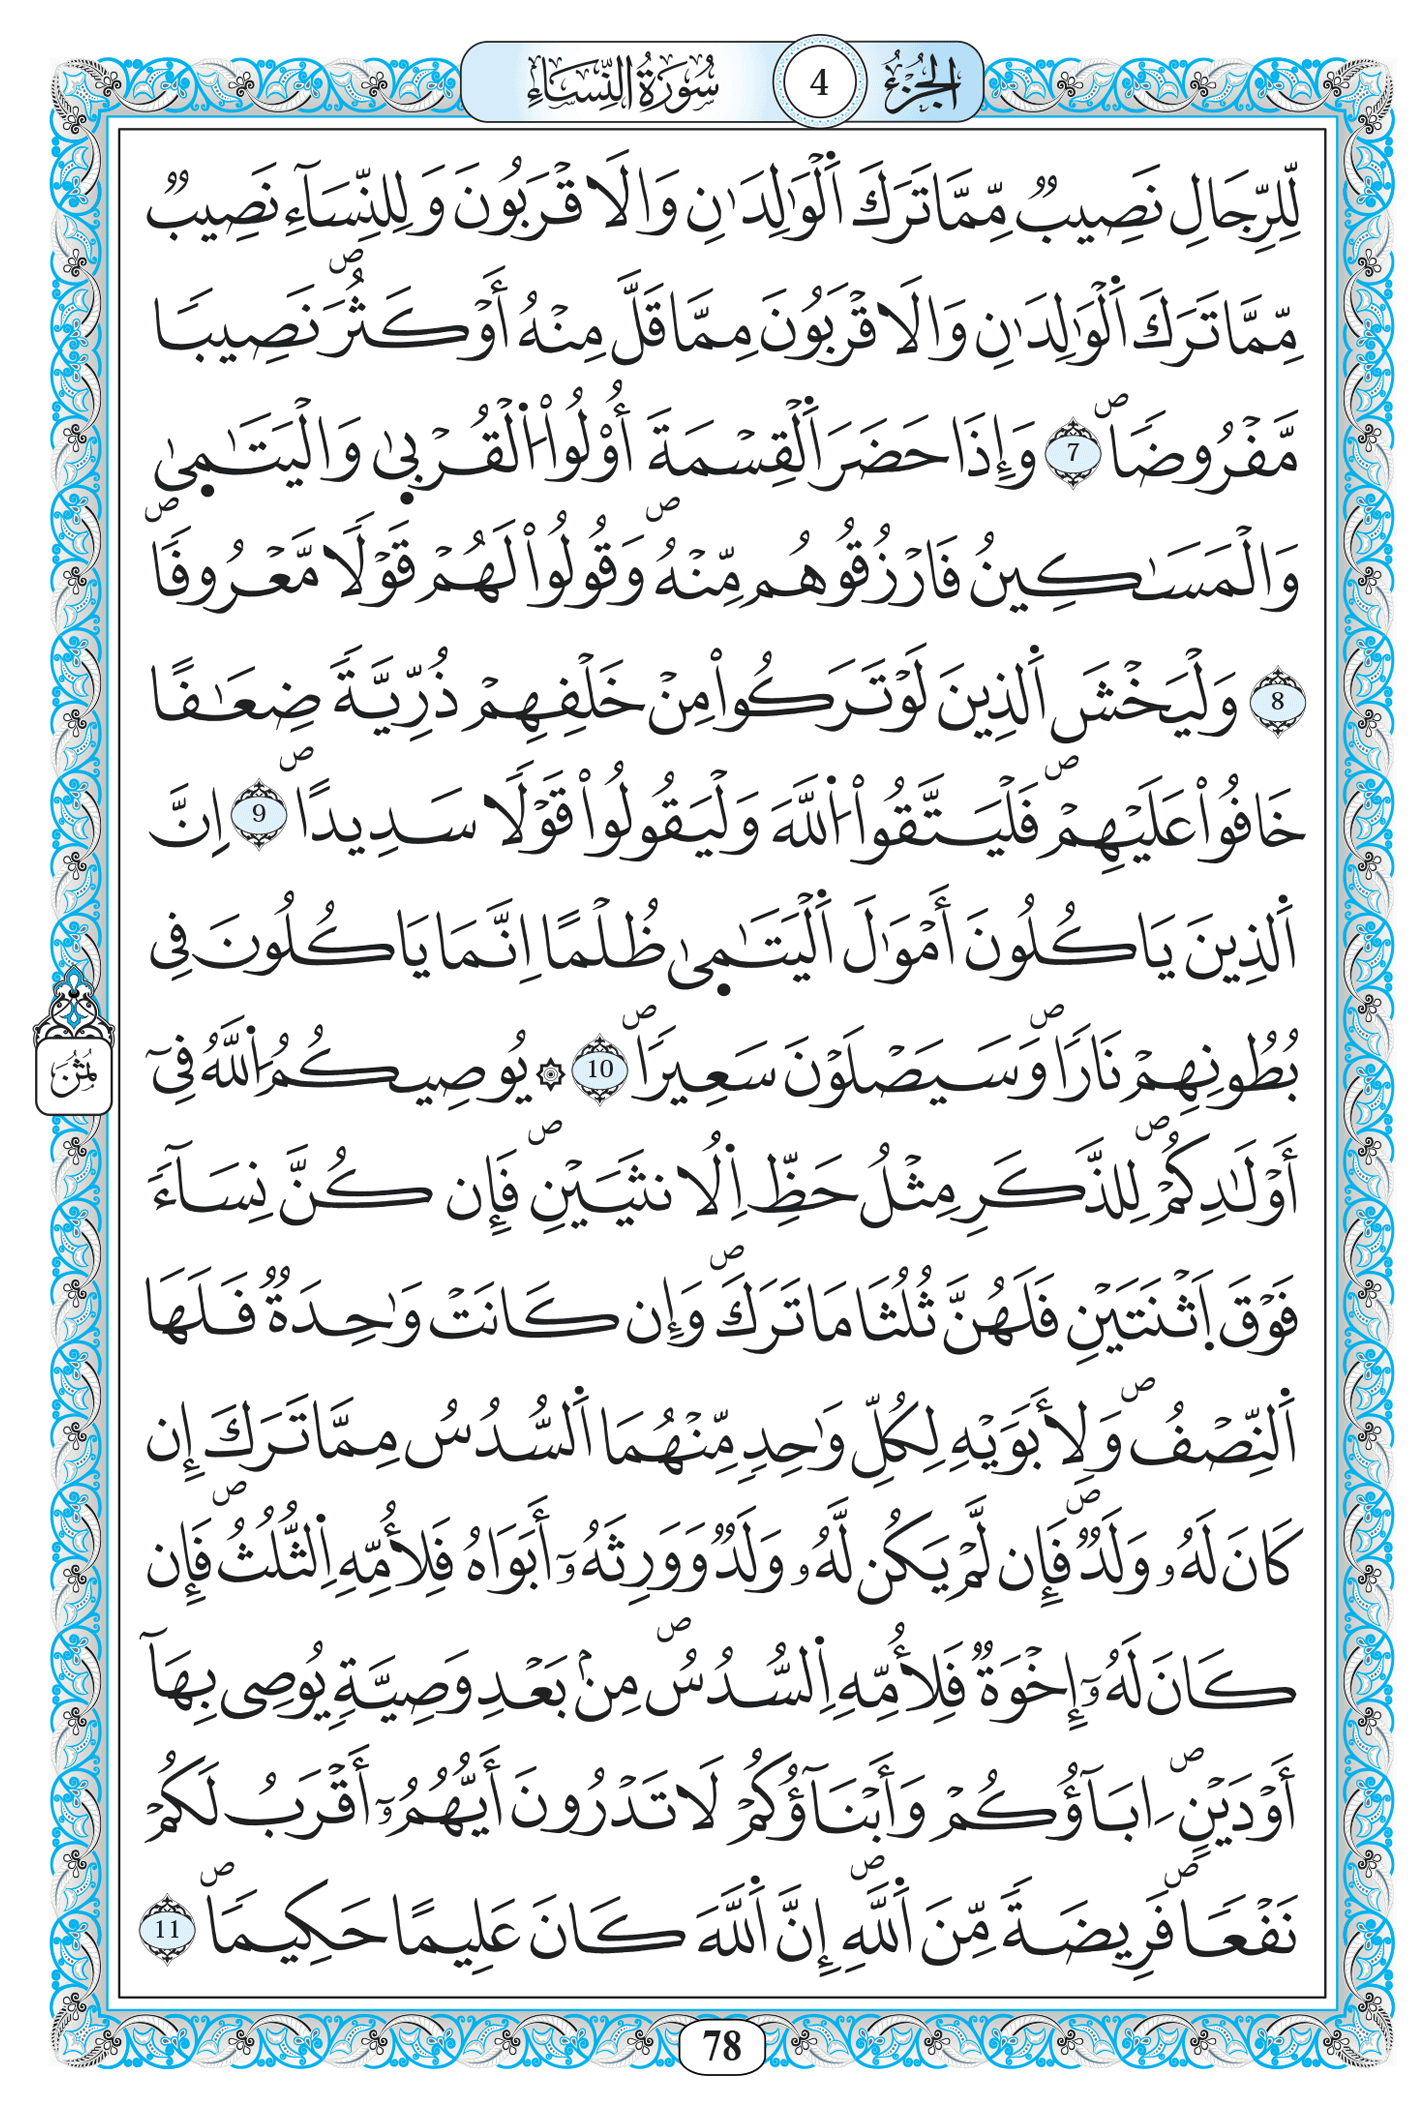 الجزء 4 سورة النساء
لِّلرِّجَالِ نَصِيبٌ مِّمَّا تَرَكَ اَ۬لْوَٰلِدَٰنِ وَالَاقْرَبُونَ وَلِلنِّسَآءِ نَصِيبٌ
مِّمَّا تَرَكَ اَ۬لْوَٰلِدَٰنِ وَالَاقْرَبُونَ مِمَّا قَلَّ مِنْهُ أَوْ كَثُرَۖ نَصِيباٗ
مَّفْرُوضاٗۖ 7 وَإِذَا حَضَرَ اَ۬لْقِسْمَةَ أُوْلُواْ اُ۬لْقُرْب۪ىٰ وَالْيَتَٰم۪ىٰ
وَالْمَسَٰكِينُ فَارْزُقُوهُم مِّنْهُۖ وَقُولُواْ لَهُمْ قَوْلاٗ مَّعْرُوفاٗۖ
8 وَلْيَخْشَ اَ۬لذِينَ لَوْ تَرَكُواْ مِنْ خَلْفِهِمْ ذُرِّيَّةٗ ضِعَٰفاً
خَافُواْ عَلَيْهِمْۖ فَلْيَتَّقُواْ اُ۬للَّهَ وَلْيَقُولُواْ قَوْلاٗ سَدِيداًۖ 9 اِنَّ
اَ۬لذِينَ يَاكُلُونَ أَمْوَٰلَ اَ۬لْيَتَٰم۪ىٰ ظُلْماً اِنَّمَا يَاكُلُونَ فِى
بُطُونِهِمْ نَاراٗۖ وَسَيَصْلَوْنَ سَعِيراٗۖ 10 ۞ يُوصِيكُمُ اُ۬للَّهُ فِىٓ
أَوْلَٰدِكُمْۖ لِلذَّكَرِ مِثْلُ حَظِّ اِ۬لُانثَيَيْنِۖ فَإِن كُنَّ نِسَآءٗ
فَوْقَ اَ۪ثْنَتَيْنِ فَلَهُنَّ ثُلُثَا مَا تَرَكَۖ وَإِن كَانَتْ وَٰحِدَةٌ فَلَهَا
اَ۬لنِّصْفُۖ وَلِأَبَوَيْهِ لِكُلِّ وَٰحِدٖ مِّنْهُمَا اَ۬لسُّدُسُ مِمَّا تَرَكَ إِن
كَانَ لَهُۥ وَلَدٌۖ فَإِن لَّمْ يَكُن لَّهُۥ وَلَدٌ وَوَرِثَهُۥٓ أَبَوَاهُ فَلِأُمِّهِ اِ۬لثُّلُثُۖ فَإِن
كَانَ لَهُۥٓ إِخْوَةٌ فَلِأُمِّهِ اِ۬لسُّدُسُۖ مِنۢ بَعْدِ وَصِيَّةٖ يُوصِى بِهَآ
أَوْ دَيْنٍۖ اٰبَآؤُكُمْ وَأَبْنَآؤُكُمْ لَا تَدْرُونَ أَيُّهُمُۥٓ أَقْرَبُ لَكُمْ
نَفْعاٗۖ فَرِيضَةٗ مِّنَ اَ۬للَّهِۖ إِنَّ اَ۬للَّهَ كَانَ عَلِيماً حَكِيماٗۖ 11
ثمن
78